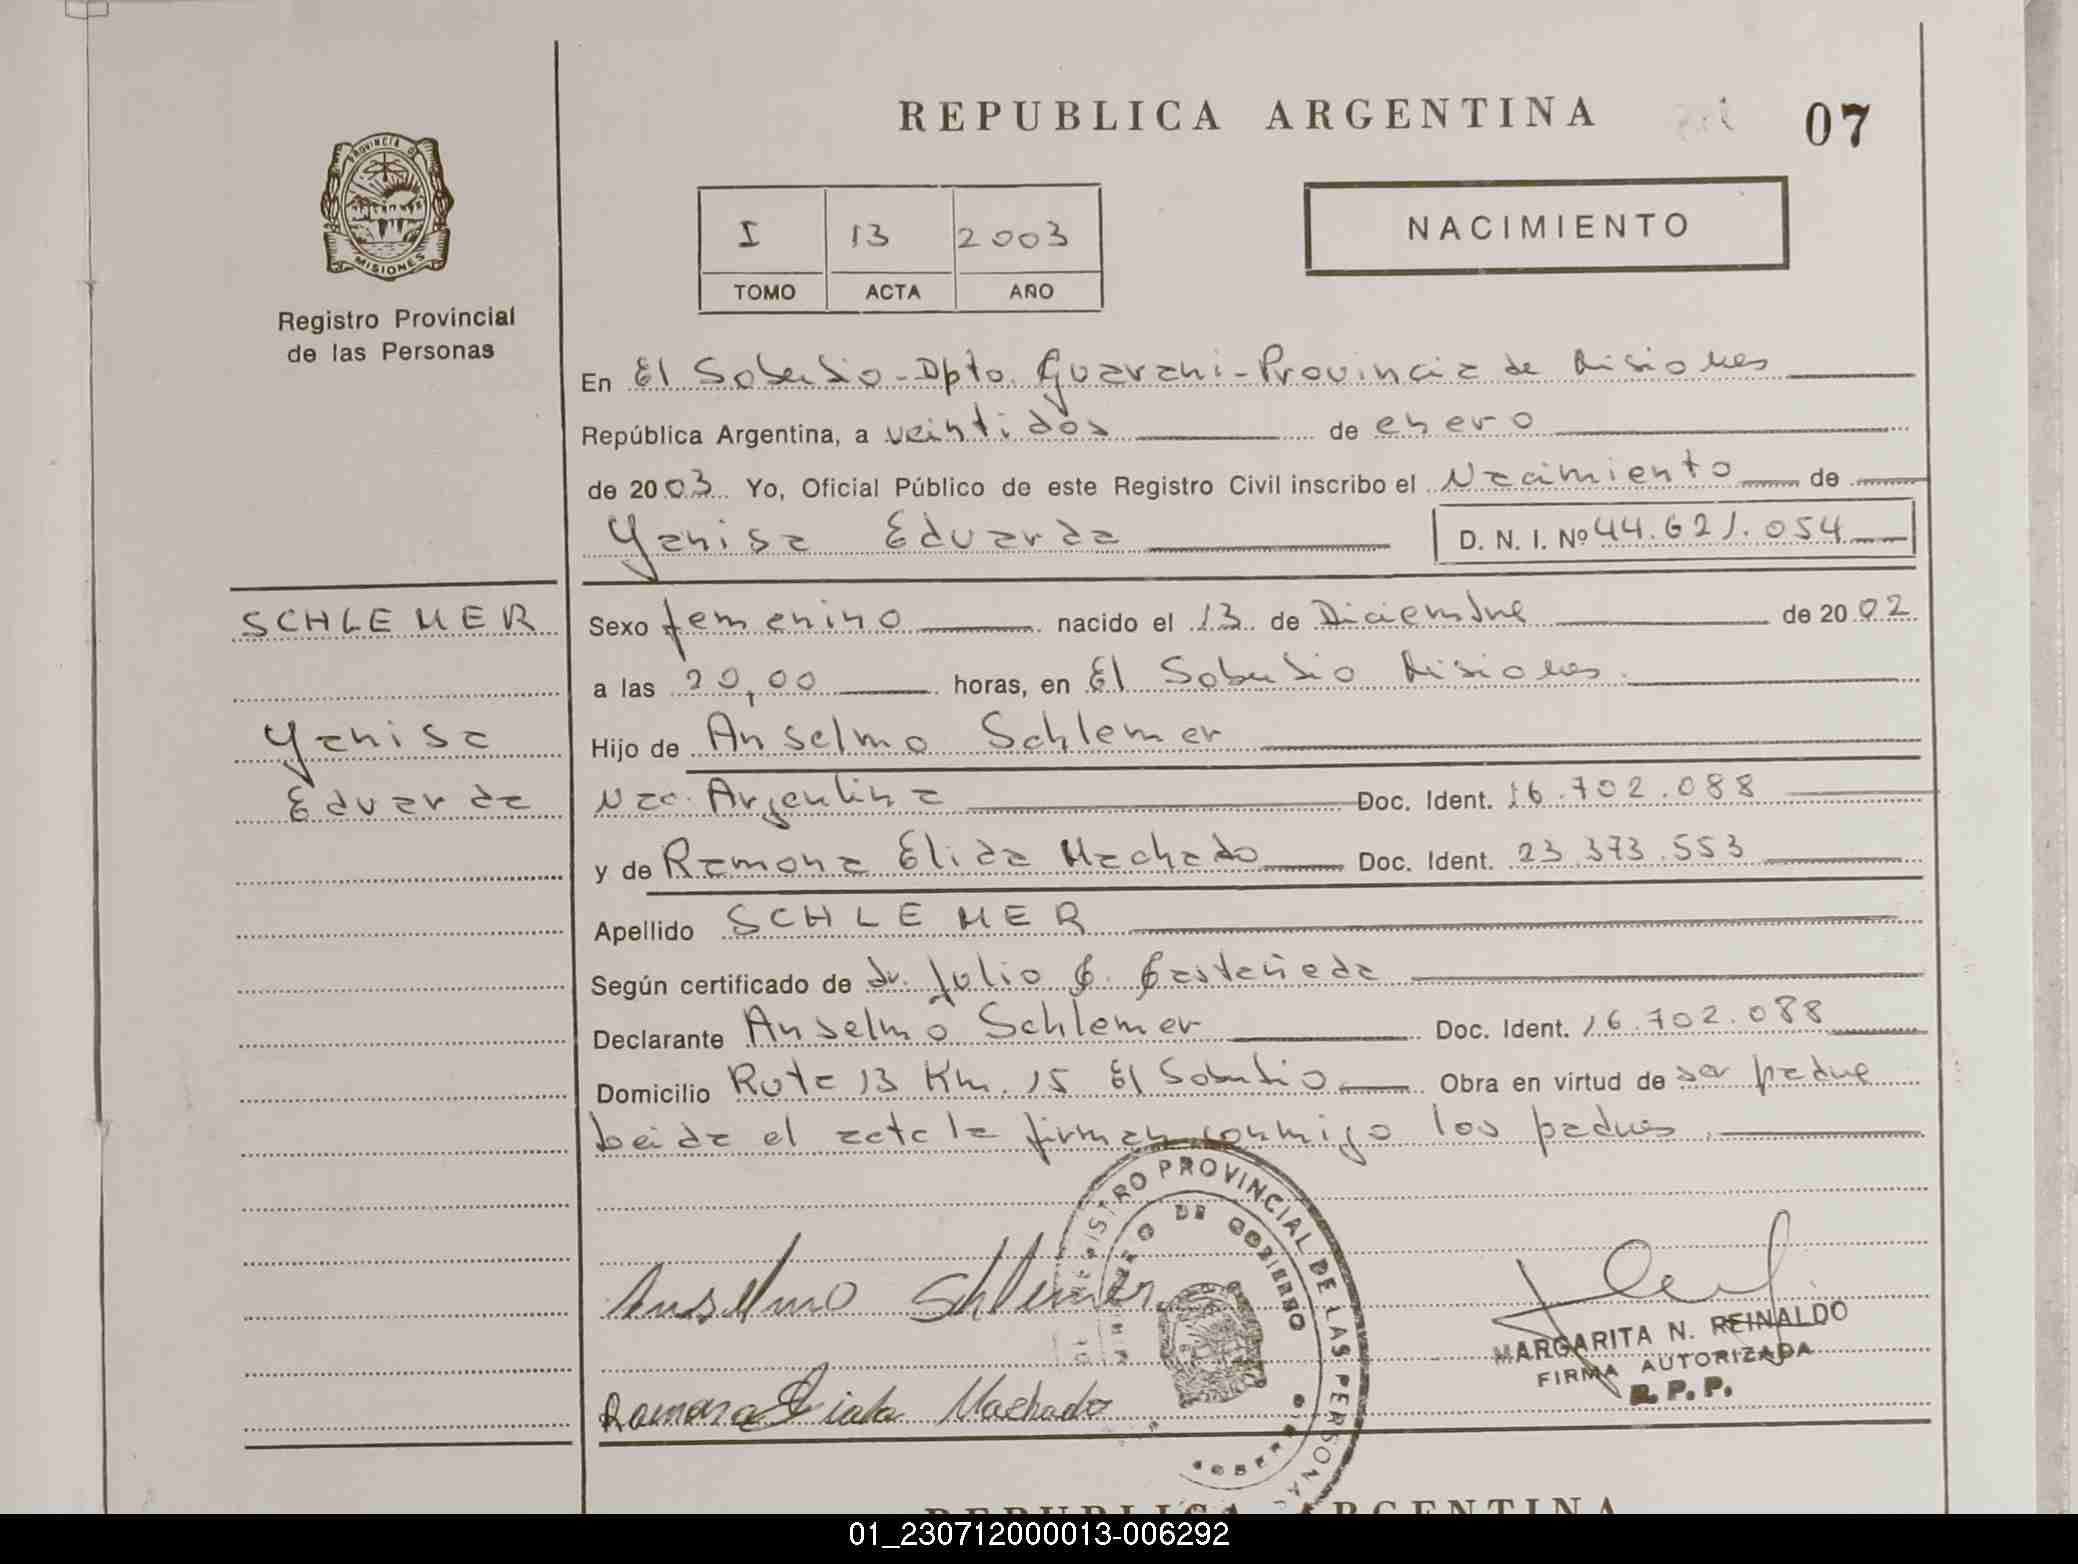 REPUBLICA ARGENTINA
07
PROVINCIA DE
MISIONES
Registro Provincial
de las Personas
I 13 2003
TOMO ACTA AÑO
NACIMIENTO
En El Soberbio - Dpto. Guarani - Provincia de Misiones
República Argentina, a veintidos de enero
de 2003 Yo, Oficial Público de este Registro Civil inscribo el Nacimiento de
Yanisa Eduarda D. N. I. Nº 44.621.054
SCHLEMER
Yanisa
Eduarda
Sexo femenino nacido el 13 de Diciembre de 2002
a las 20,00 horas, en El Soberbio Misiones.
Hijo de Anselmo Schlemer
Nac. Argentina Doc. Ident. 16.702.088
y de Ramona Elida Machado Doc. Ident. 23.373.553
Apellido SCHLEMER
Según certificado de Dr. Julio C. Castañeda
Declarante Anselmo Schlemer Doc. Ident. 16.702.088
Domicilio Ruta 13 Km. 15 El Soberbio Obra en virtud de ser padre
Leida el acta la firman conmigo los padres.
REGISTRO PROVINCIAL DE LAS PERSONAS
DE GOBIERNO
Anselmo Schlemer
MARGARITA N. REINALDO
FIRMA AUTORIZADA
R. P. P.
Ramona Machado
REPUBLICA ARGENTINA
01_230712000013-006292